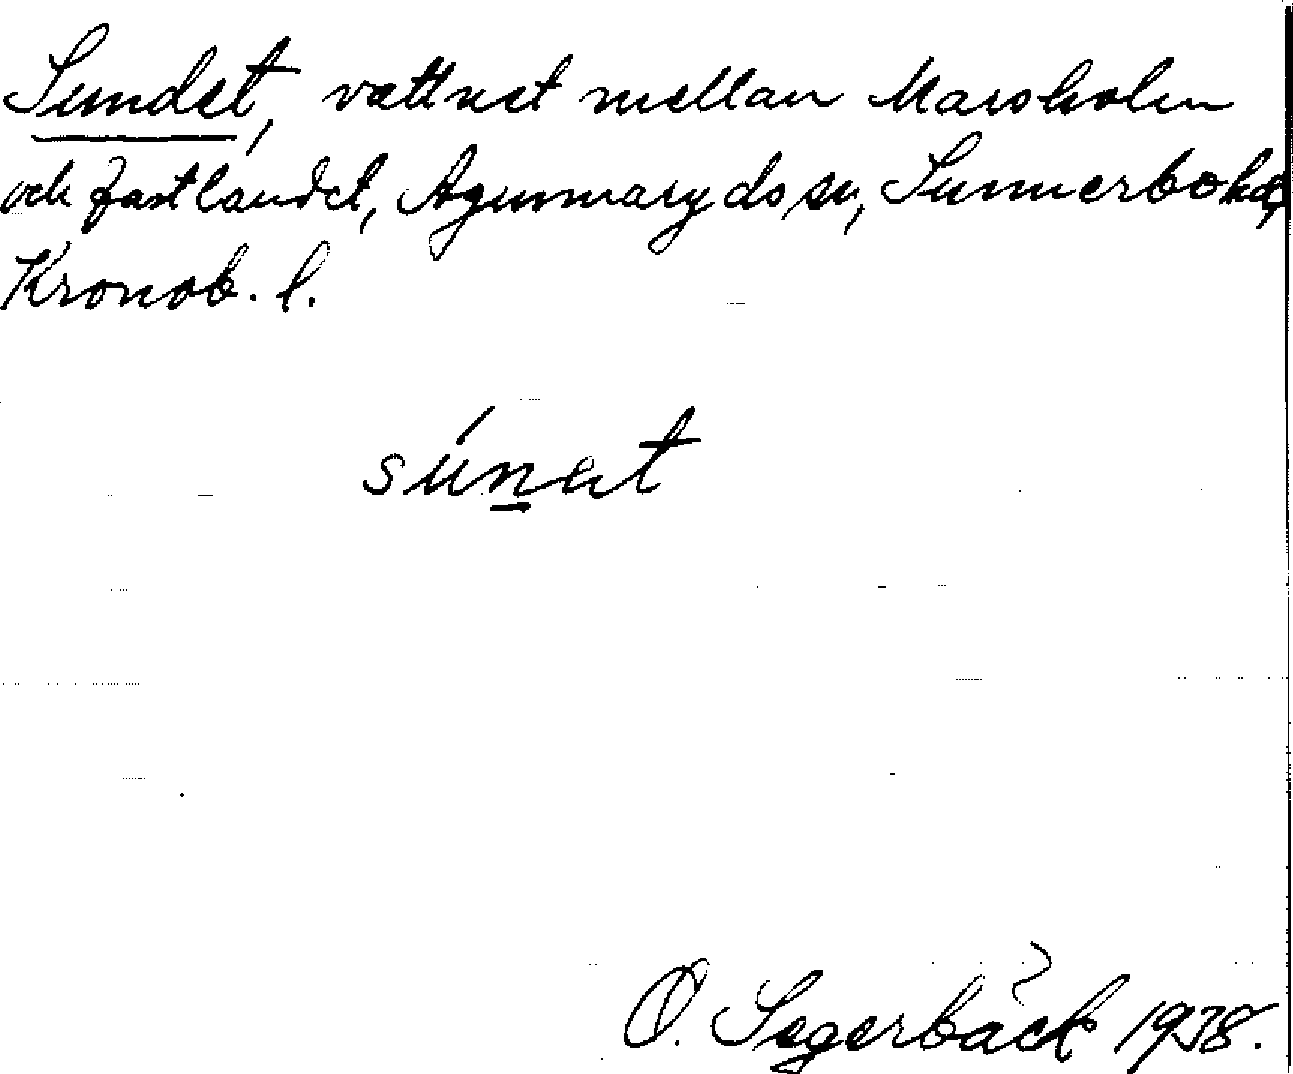 Sundet, vattnet mellan Marsholm
och fastlandet, Agunnaryds sn, Sunnerbo hd,
Kronob. l.
súnət
O. Segerbäck 1938.